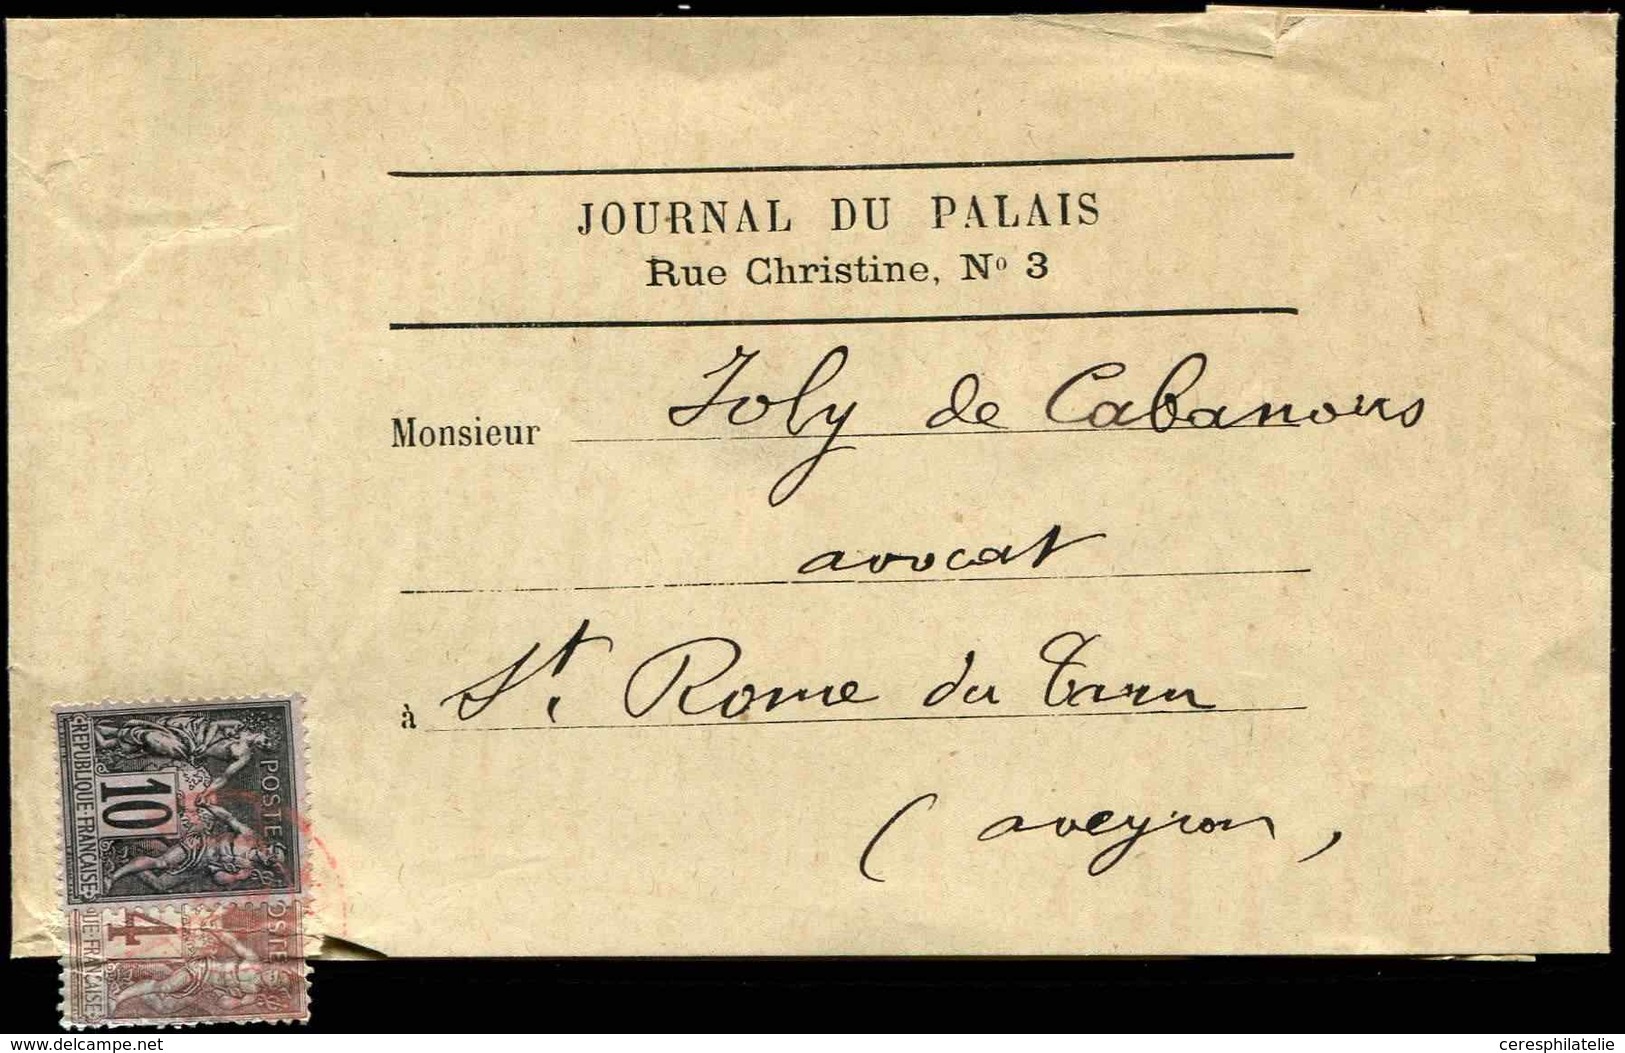 JOURNAL DU PALAIS
Rue Christine, Nº 3
Monsieur Joly de Cabanous
avocat
à St. Rome du Tarn
(aveyron,
POSTES
10
REPUBLIQUE·FRANÇAISE
OSTES
4
QUE·FRANÇAISE
www.delcampe.net
ceresphilatelie